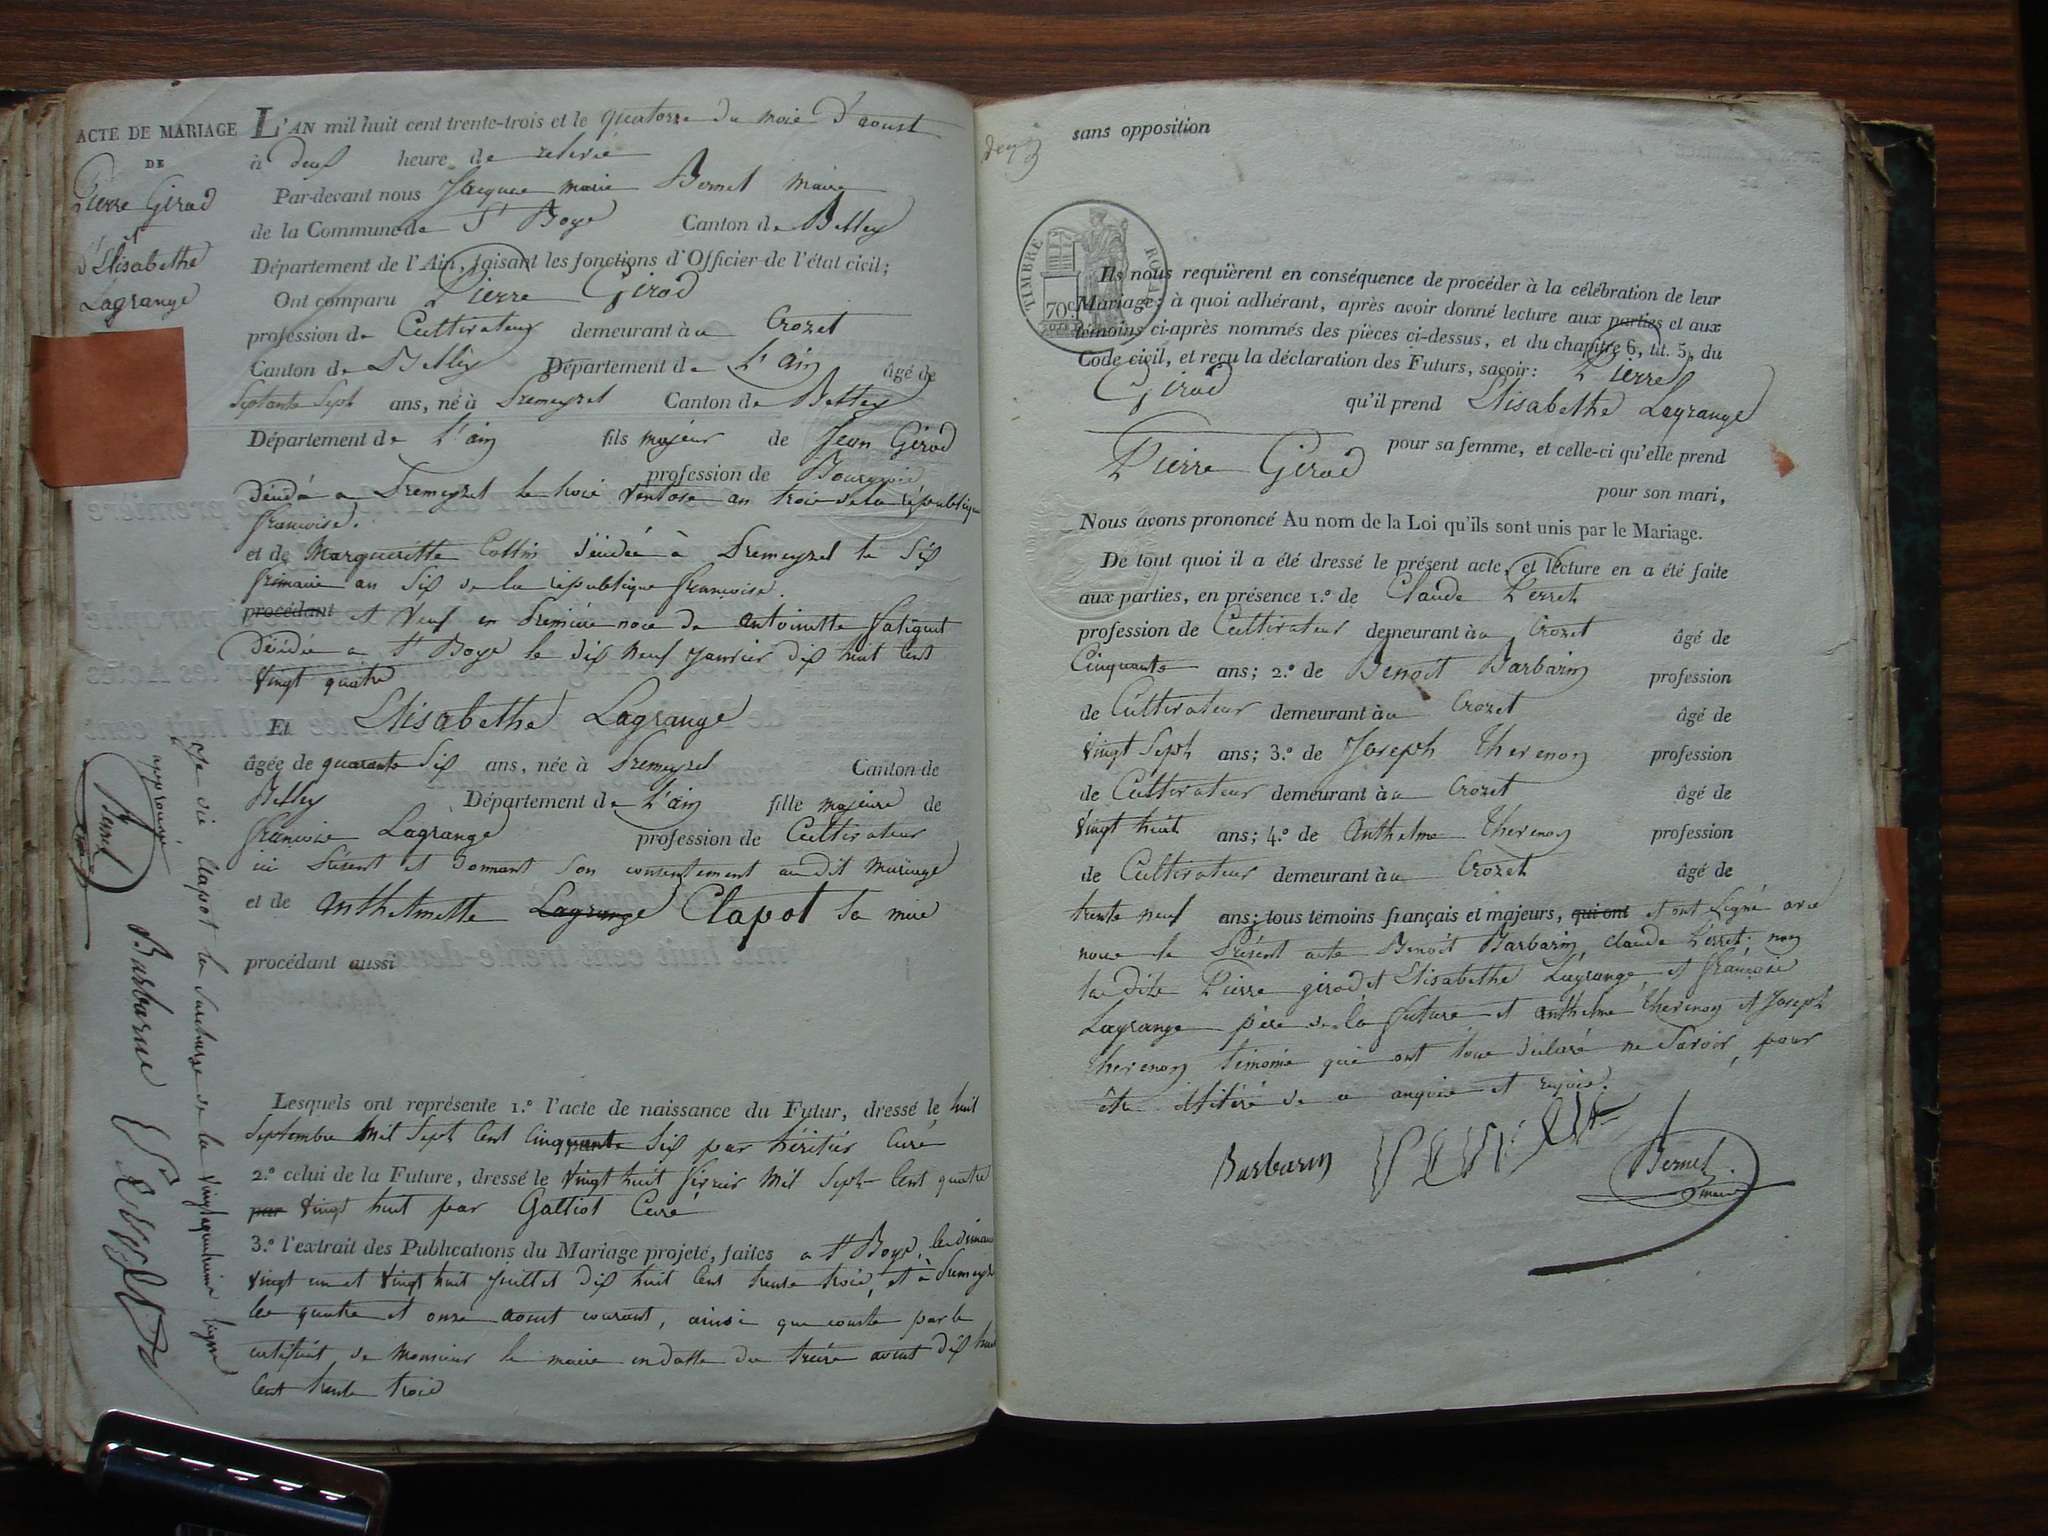 ACTE DE MARIAGE
DE
Pierre Girod
et
d'Elisabethe
Lagrange
L'AN mil huit cent trente-trois et le quatorze du mois D'aoust
à deux heure de relevée
Par-devant nous Jacques marie Bernel maire
de la Commune de St Boys Canton de Belley
Département de l'Ain, faisant les fonctions d'Officier de l'état civil;
Ont comparu Pierre Girod
profession de Cultivateur demeurant à a Crozet
Canton de Belley Département de L'ain âgé de
Septante Sept ans, né à Premeyzel Canton de Belley
Département de L'ain fils majeur de Jean Girod
profession de Bourgeois
Décédé a Premeyzel le trois Ventose an trois de la république
francoise.
et de Margueritte Collin décédée à Premeyzel le Six
frimaire an Six de la république francoise.
procédant et Veuf en Premiere noce de antoinette
Décédée a St Boys le dix neuf Janvier dix huit Cent
Vingt quatre
Et Elisabethe Lagrange
âgée de quarante Six ans, née à Premeyzel Canton de
Belley Département de L'ain fille majeure de
francois Lagrange profession de Cultivateur
ici Présent et donnant Son consentement au dit Mariage
et de anthelmette Lagrange Clapot Sa mère
procédant aussi
Lesquels ont représenté 1.º l'acte de naissance du Futur, dressé le huit
Septembre Mil Sept Cent Cinquante Six par héritier Curé
2.º celui de la Future, dressé le Vingt huit février Mil Sept Cent quatre
par Vingt huit par Galliot Curé
3.º l'extrait des Publications du Mariage projeté, faites a St Boys, les dimanc
Vingt un et Vingt huit Juillet dix huit Cent trente trois, et à Premeyze
les quatre et onze aout courant, ainsi que conste par le
certificat de Monsieur le maire en datte du treize aout dix huit
Cent trente trois
Clapot la Surcharge de la Vingtquatrieme ligne
approuvé
Bernel
maire
Barbarin
Perret
sans opposition
TIMBRE ROYAL
70c
Ils nous requièrent en conséquence de procéder à la célébration de leur
Mariage; à quoi adhérant, après avoir donné lecture aux parties et aux
témoins ci-après nommés des pièces ci-dessus, et du chapitre 6, tit. 5, du
Code civil, et reçu la déclaration des Futurs, savoir: Pierre
Girod qu'il prend Elisabethe Lagrange
pour sa femme, et celle-ci qu'elle prend
Pierre Girod
pour son mari,
Nous avons prononcé Au nom de la Loi qu'ils sont unis par le Mariage.
De tout quoi il a été dressé le présent acte, et lecture en a été faite
aux parties, en présence 1.º de Claude Perret
profession de Cultivateur demeurant à a Crozet âgé de
Cinquante ans; 2.º de Benoit Barbarin profession
de Cultivateur demeurant à a Crozet âgé de
Vingt Sept ans; 3.º de Joseph thevenon profession
de Cultivateur demeurant à a Crozet âgé de
Vingt huit ans; 4.º de Anthelme thevenon profession
de Cultivateur demeurant à a Crozet âgé de
trente neuf ans; tous témoins français et majeurs, qui ont et ont Signé avec
nous le Présent acte Benoit Barbarin, Claude Perret; non
les dits Pierre girod et Elisabethe Lagrange, et francois
Lagrange père de la future et anthelme thevenon et Joseph
thevenon témoins qui ont tous déclaré ne Savoir, pour
être de ce enquis et requis.
Barbarin Perret Bernel
maire